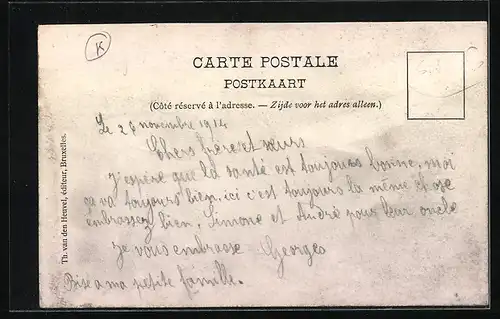 K
CARTE POSTALE
POSTKAART
(Côté réservé à l'adresse. — Zijde voor het adres alleen.)
Th. van den Heuvel, éditeur, Bruxelles.
Le 26 novembre 1914
Chers frère et sœurs
J'espère que la santé est toujours bonne, moi
ça va toujours bien, ici c'est toujours la même chose
embrassez bien, Simone et André pour leur oncle
Je vous embrasse Georges
Bise a ma petite famille.